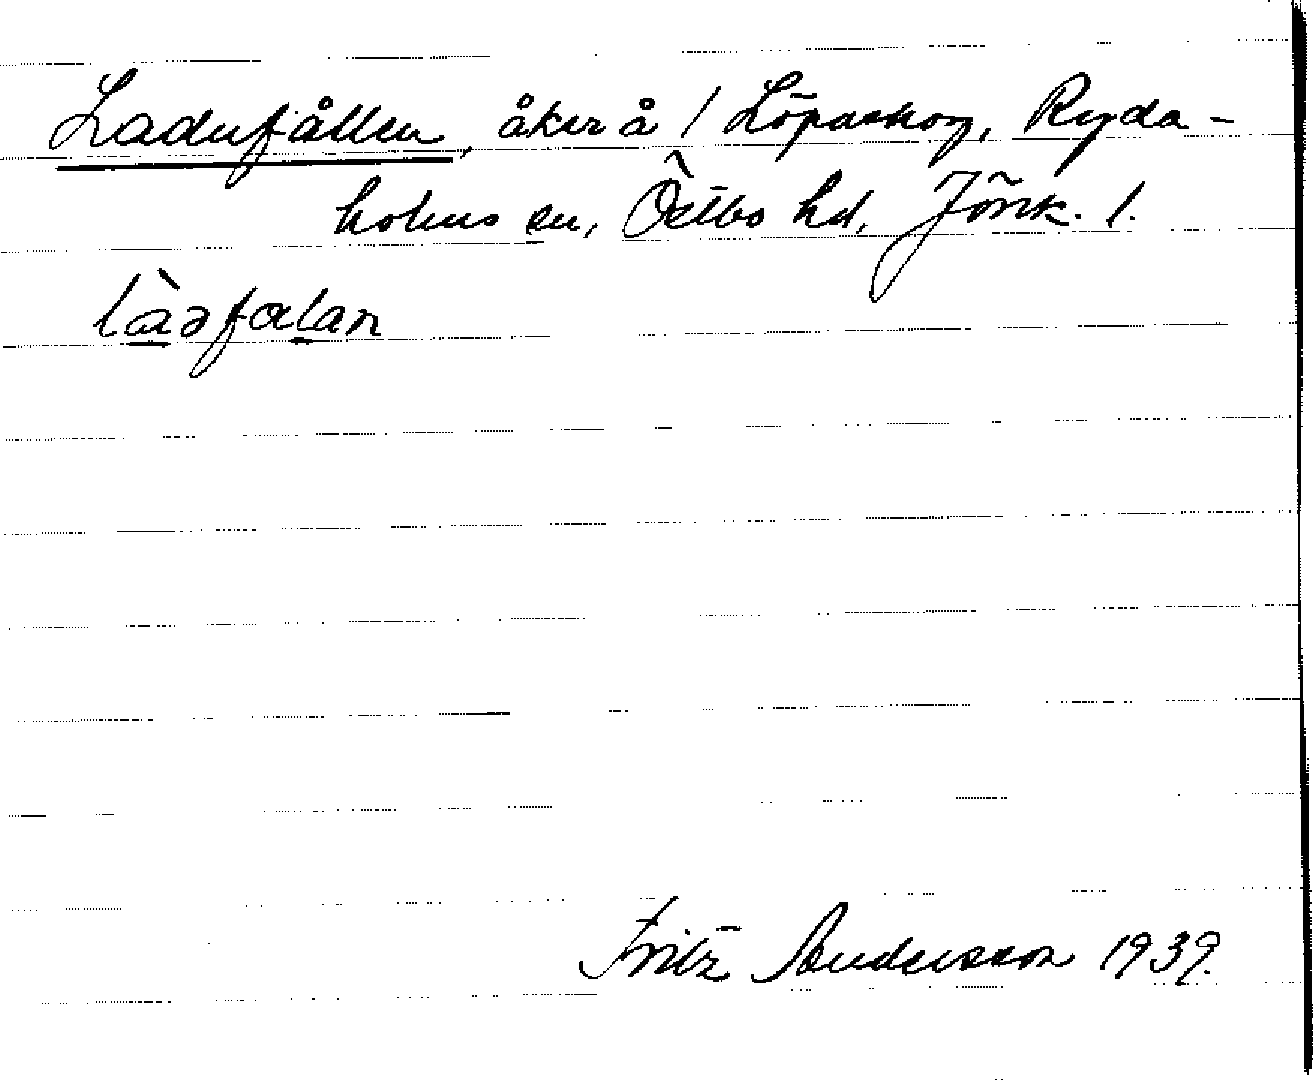 Ladufållen, åker å / Löpaskog, Ryda-
holms sn, Östbo hd, Jönk. l.
làdfalan
Fritz Andersson 1939.